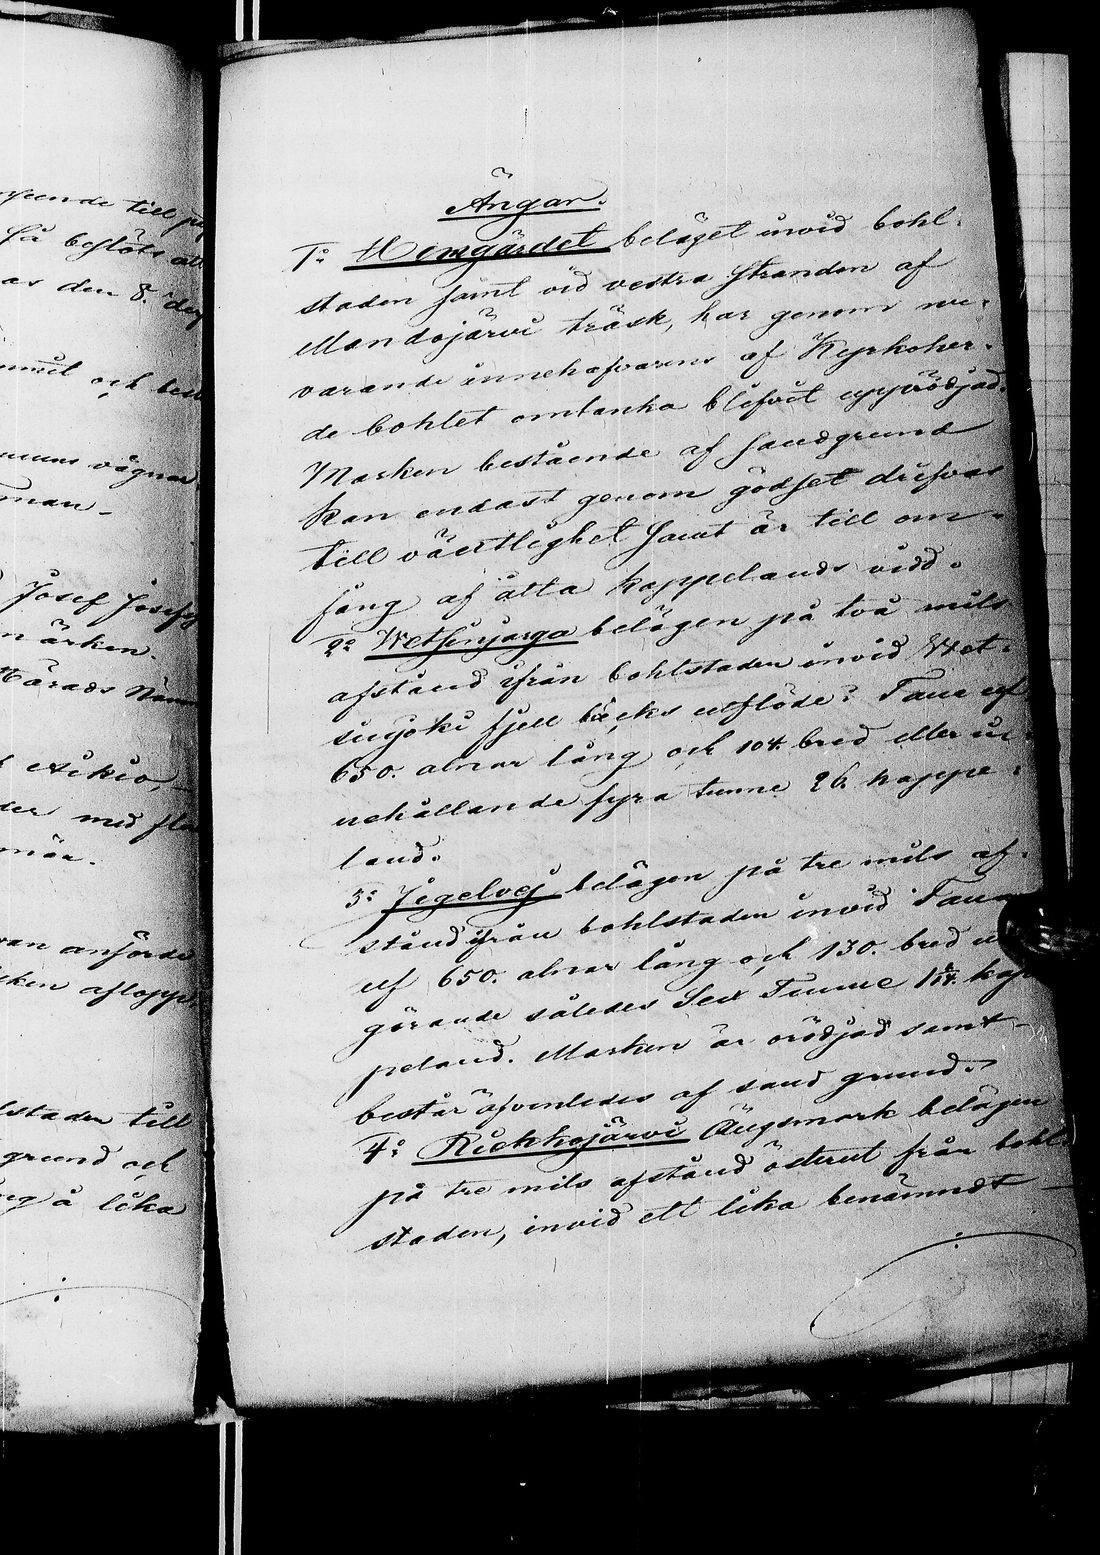 ende till
så beslöts att
den 8. dag
och
vägnar
man.
Josef Josefs
märken.
Härads Näm
Aikio,
med
män.
van anförde
aflopp
lstaden till
grund och
å lika
Ängar.
1º Hemgärdet beläget invid bohl-
staden samt vid vestra stranden af
Mandojärvi träsk, har genom nu-
varande innehafvarens af Kyrkoher-
de bohlet omtanka blifvit uppröjdjad.
Marken bestående af sandgrund
kan endast genom gödset drifvas
till växtlighet samt är till om-
fång af åtta kappelands vidd.
2º Wetsinjarga belägen på två mils
afstånd ifrån bohlstaden invid Wet-
sinjoki fjell bäcks utflöde i Tana elf
650. alnar lång och 104. bred eller in-
nehållande fyra tunne 26. kappe-
land.
3º Jigelvej belägen på tre mils af-
stånd ifrån bohlstaden invid Tana
elf 650. alnar lång och 130. bred u
görande således Sex Tunne kap
peland. Marken är oröjdjad samt
består äfvenledes af sand grund.
4º Riekkojärvi Ängsmark belägen
på tre mils afstånd österut från bohl
staden, invid ett lika benämndt